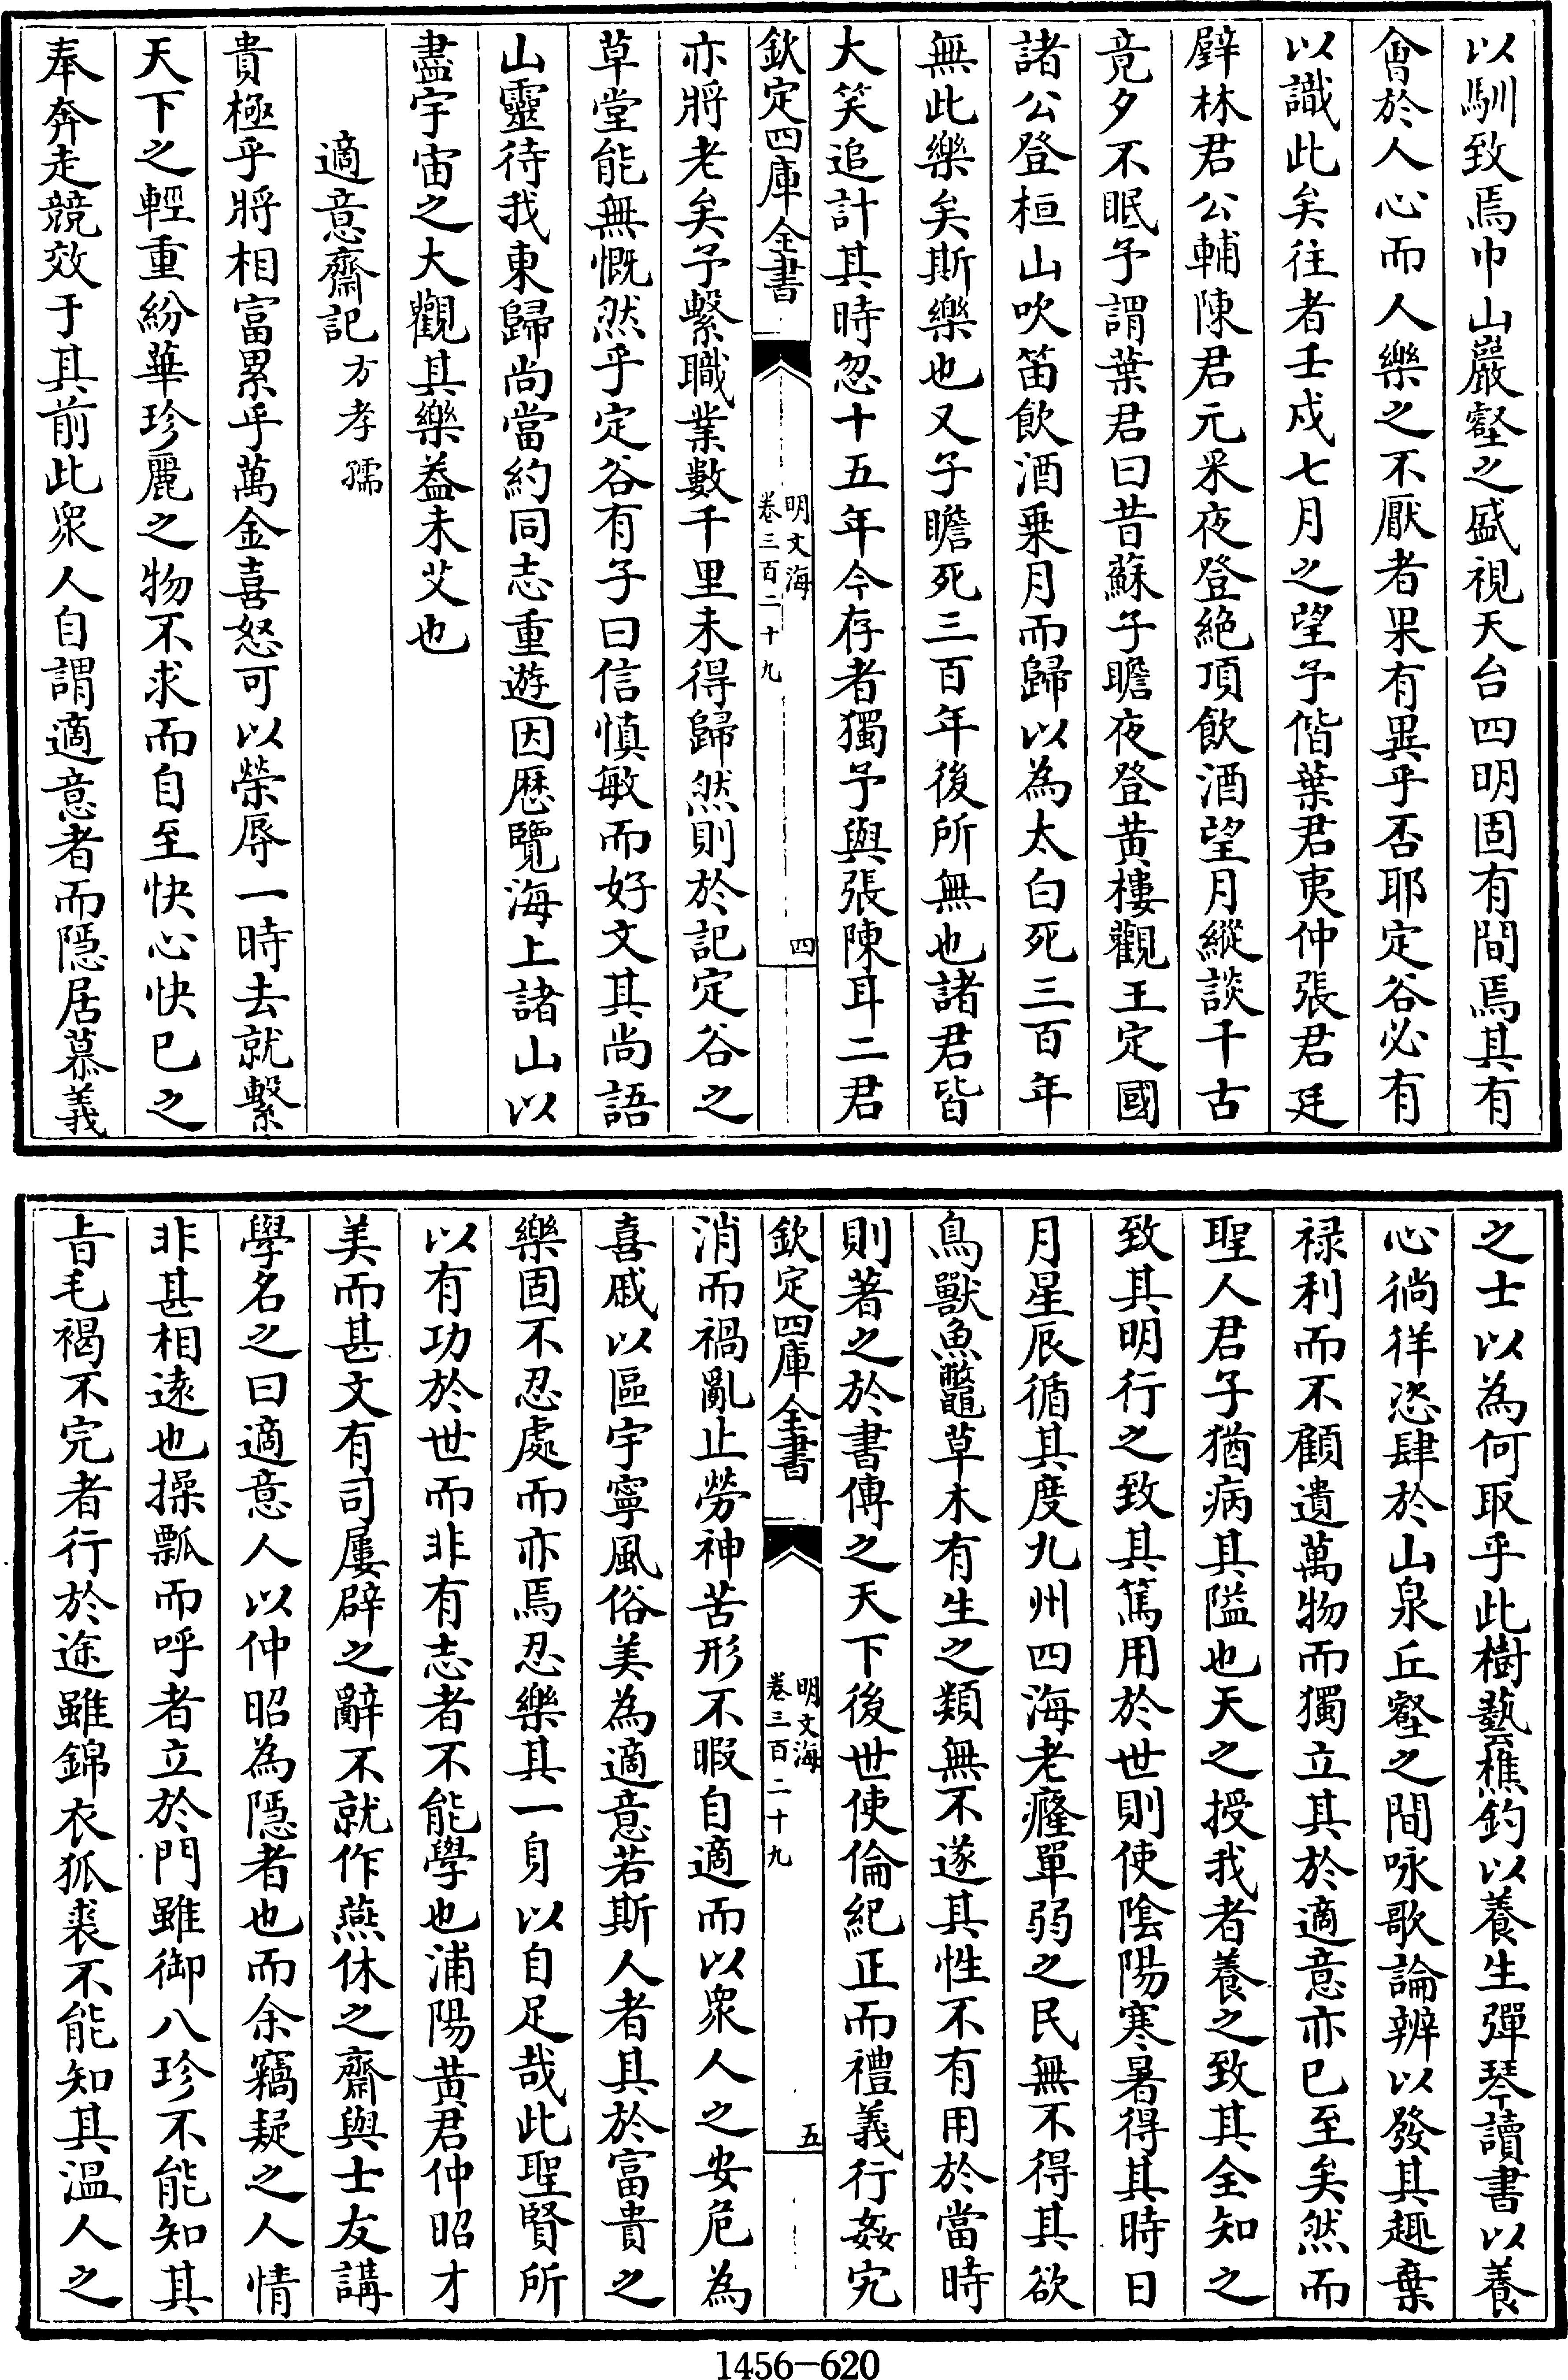 以馴致焉巾山巖壑之盛視天台四明固有間焉其有
會於人心而人樂之不厭者果有異乎否耶定谷必有
以識此矣往者壬戌七月之望予偕葉君夷仲張君廷
璧林君公輔陳君元采夜登絕頂飲酒望月縱談千古
竟夕不眠予謂葉君曰昔蘇子瞻夜登黃樓觀王定國
諸公登桓山吹笛飲酒乗月而歸以為太白死三百年
無此樂矣斯樂也又子瞻死三百年後所無也諸君皆
大笑追計其時忽十五年今存者獨予與張陳耳二君
欽定四庫全書
明文海
卷三百二十九
四
亦將老矣予繫職業數千里未得歸然則於記定谷之
草堂能無慨然乎定谷有子曰信慎敏而好文其尚語
山靈待我東歸尚當約同志重遊因歷覽海上諸山以
盡宇宙之大觀其樂益未艾也
適意齋記 方孝孺
貴極乎將相富累乎萬金喜怒可以榮辱一時去就繫
天下之輕重紛華珍麗之物不求而自至快心快已之
奉奔走競效于其前此衆人自謂適意者而隱居慕義
之士以為何取乎此樹藝樵釣以養生彈琴讀書以養
心徜徉恣肆於山泉丘壑之間咏歌論辨以發其趣棄
祿利而不顧遺萬物而獨立其於適意亦已至矣然而
聖人君子猶病其隘也天之授我者養之致其全知之
致其明行之致其篤用於世則使陰陽寒暑得其時日
月星辰循其度九州四海老癃單弱之民無不得其欲
鳥獸魚鼈草木有生之類無不遂其性不有用於當時
則著之於書傳之天下後世使倫紀正而禮義行姦宄
欽定四庫全書
明文海
卷三百二十九
五
消而禍亂止勞神苦形不暇自適而以衆人之安危為
喜戚以區宇寧風俗美為適意若斯人者其於富貴之
樂固不忍處而亦焉忍樂其一身以自足哉此聖賢所
以有功於世而非有志者不能學也浦陽黃君仲昭才
美而甚文有司屢辟之辭不就作燕休之齋與士友講
學名之曰適意人以仲昭為隱者也而余竊疑之人情
非甚相遠也操瓢而呼者立於門雖御八珍不能知其
旨毛褐不完者行於途雖錦衣狐裘不能知其溫人之
1456—620